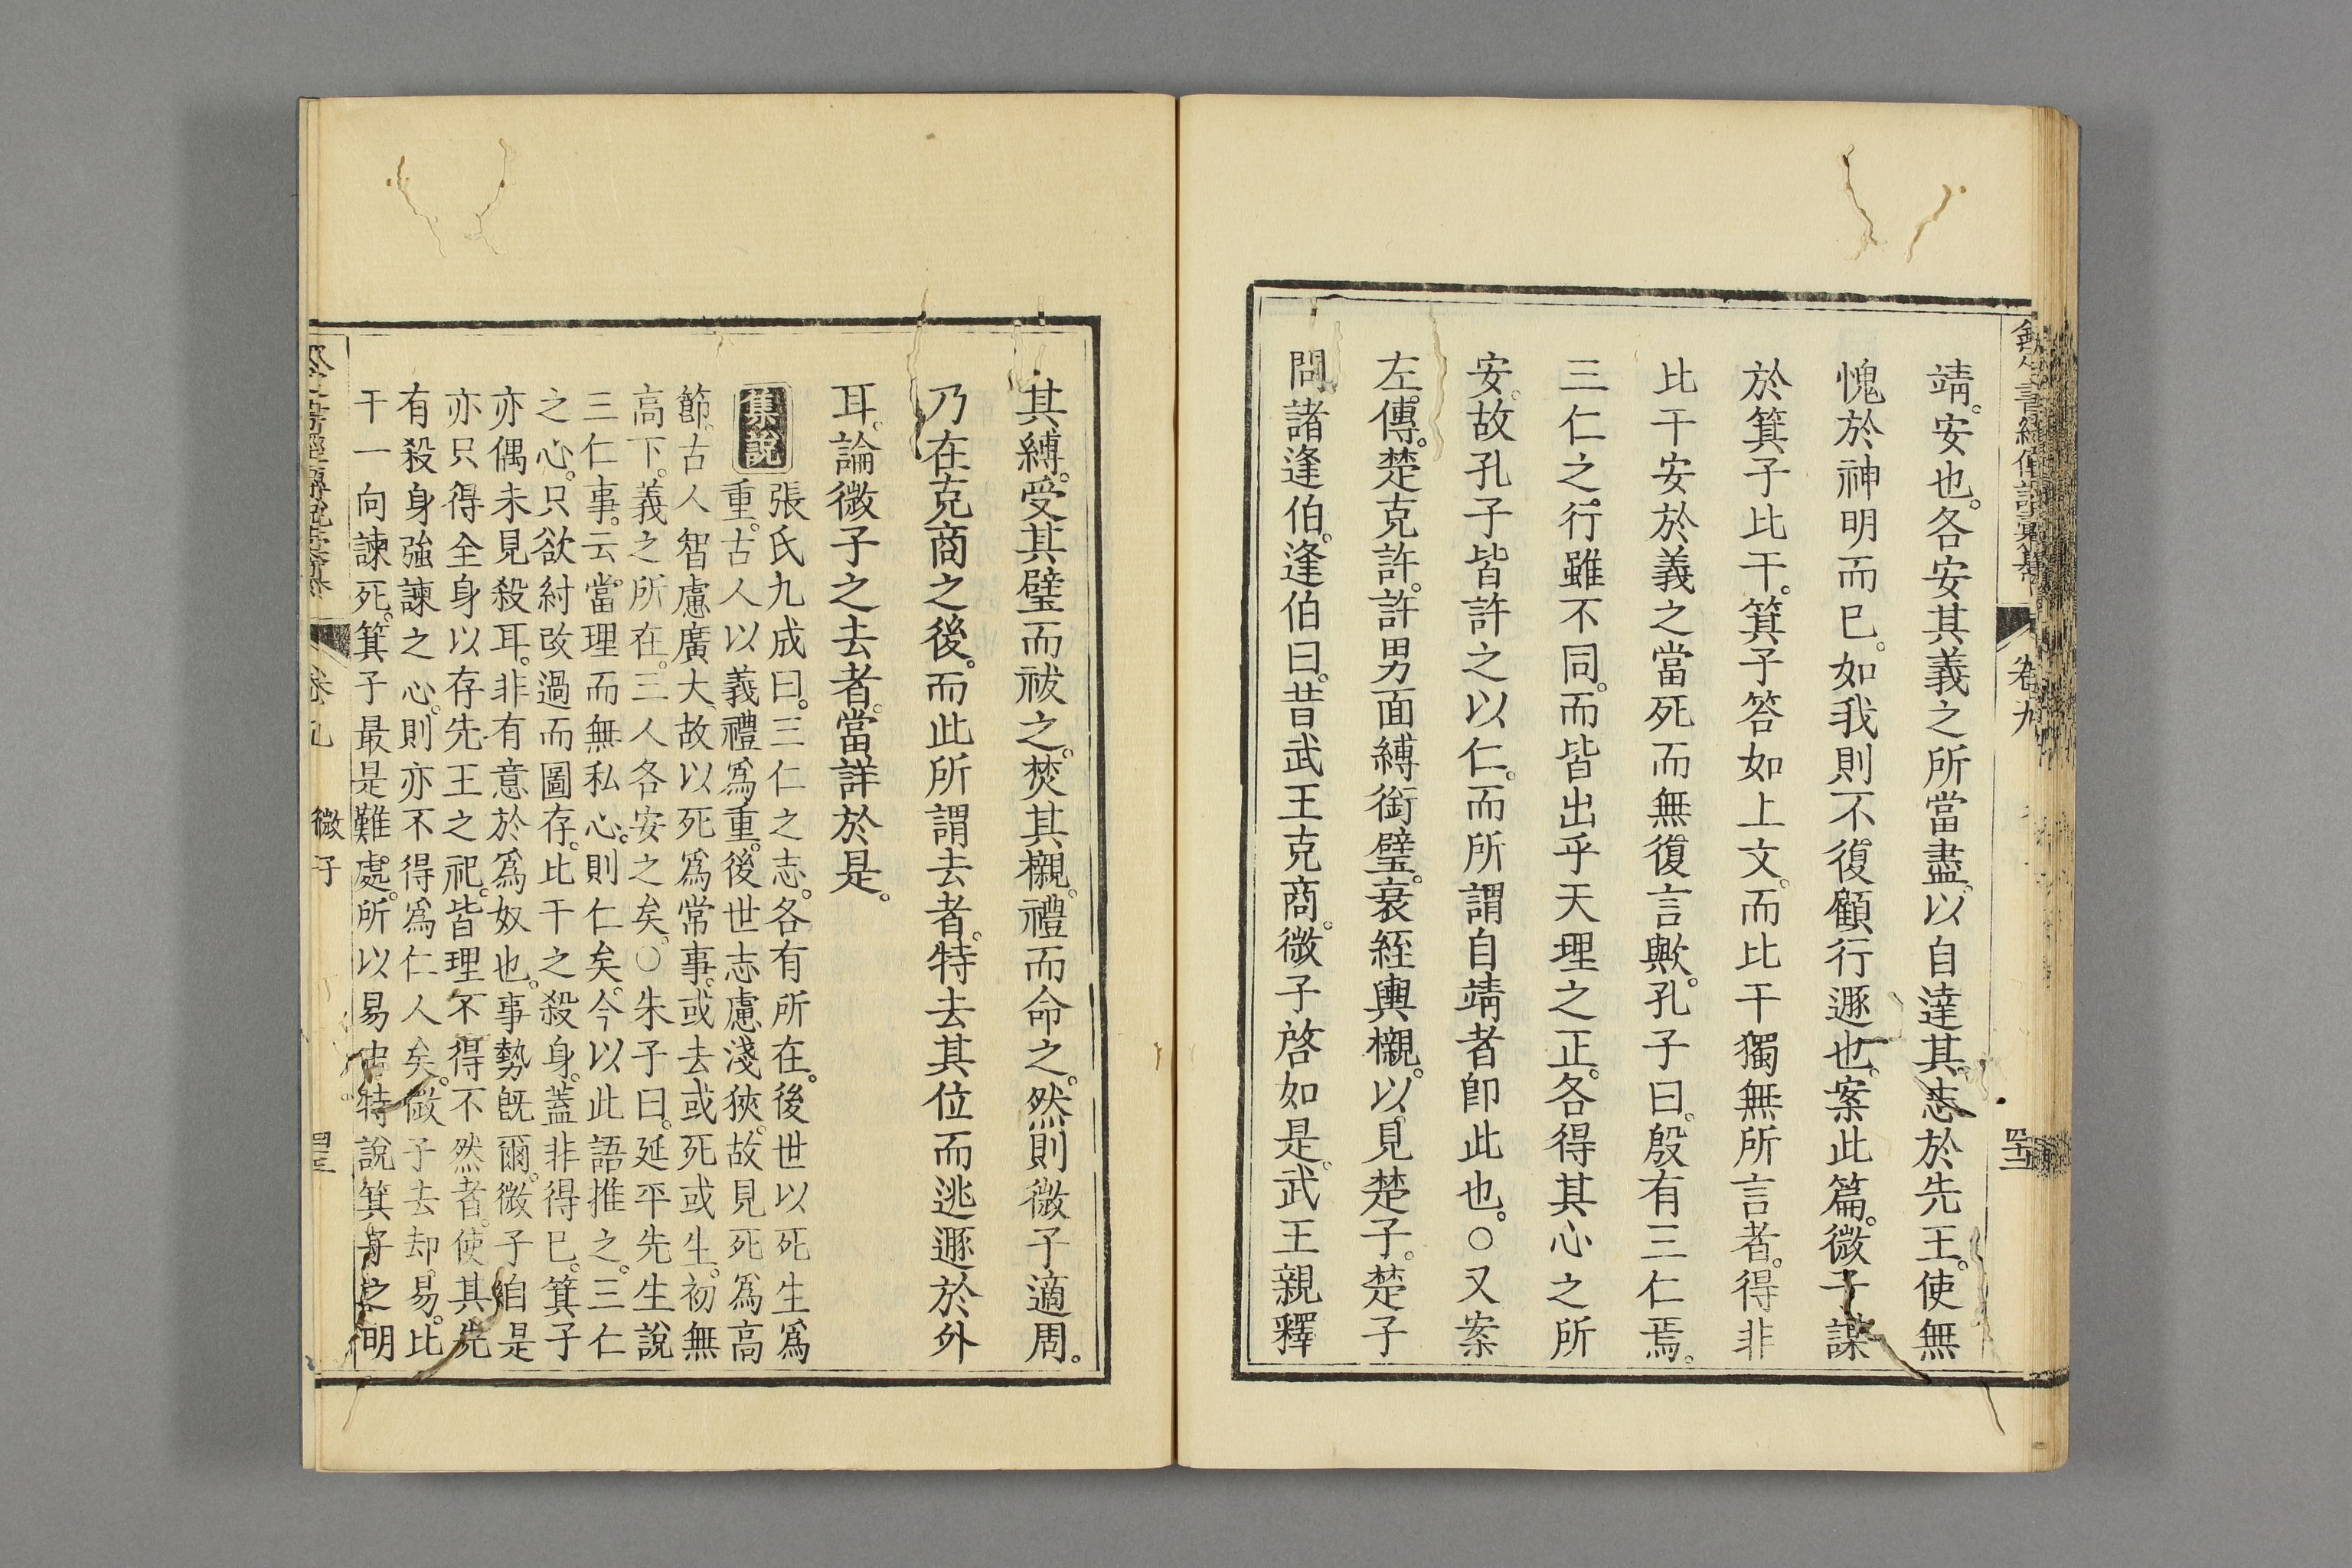 靖。安也。各安其義之所當盡。以自達其志於先王。使無
愧於神明而已。如我則不復顧行遯也。案此篇。微子謀
於箕子比干。箕子答如上文。而比干獨無所言者。得非
比干安於義之當死而無復言歟。孔子曰。殷有三仁焉。
三仁之行雖不同。而皆出乎天理之正。各得其心之所
安。故孔子皆許之以仁。而所謂自靖者卽此也。○又案
左傳。楚克許。許男面縛銜璧。衰絰輿櫬。以見楚子。楚子
問。諸逢伯。逢伯曰。昔武王克商。微子啓如是。武王親釋
其縛。受其璧而祓之。焚其櫬。禮而命之。然則微子適周。
乃在克商之後。而此所謂去者。特去其位而逃遯於外
耳。論微子之去者。當詳於是。
集說
張氏九成曰。三仁之志。各有所在。後世以死生爲
重。古人以義禮爲重。後世志慮淺狹。故見死爲高
節。古人智慮廣大。故以死爲常事。或去或死或生。初無
高下。義之所在。三人各安之矣。○朱子曰。延平先生說
三仁事。云當理而無私心。則仁矣。今以此語推之。三仁
之心。只欲紂改過而圖存。比干之殺身。蓋非得已。箕子
亦偶未見殺耳。非有意於爲奴也。事勢旣爾。微子自是
亦只得全身以存先王之祀。皆理不得不然者。使其先
有殺身強諫之心。則亦不得爲仁人矣。微子去却易。比
干一向諫死。箕子最是難處。所以易中特說箕子之明
微子
四三
卷九
四二